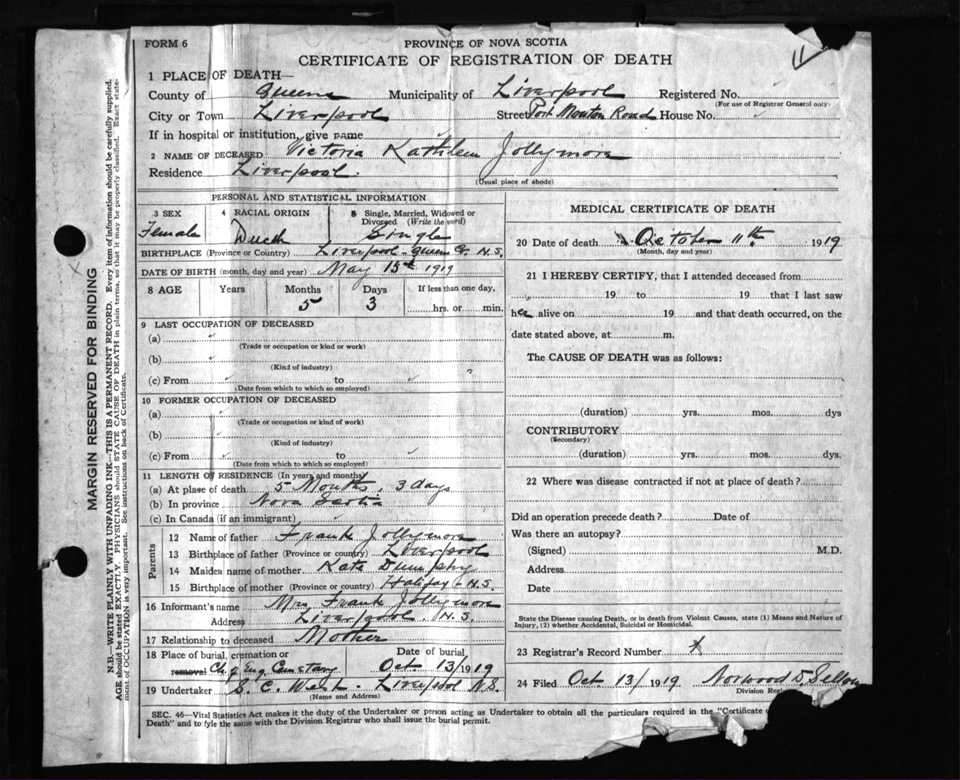 FORM 6
PROVINCE OF NOVA SCOTIA
CERTIFICATE OF REGISTRATION OF DEATH
1 PLACE OF DEATH—
County of Queens Municipality of Liverpool Registered No.
(For use of Registrar General only)
City or Town Liverpool Street Port Mouton Road House No.
If in hospital or institution, give name
2 NAME OF DECEASED Victoria Kathleen Jollymore
Residence Liverpool.
(Usual place of abode)
PERSONAL AND STATISTICAL INFORMATION
3 SEX 4 RACIAL ORIGIN 5 Single, Married, Widowed or Divorced (Write the word)
Female Duch Single
BIRTHPLACE (Province or Country) Liverpool - Queens Co. N.S.
DATE OF BIRTH (month, day and year) May 15th 1919
8 AGE Years Months Days If less than one day,
5 3 hrs. or min.
9 LAST OCCUPATION OF DECEASED
(a)
(Trade or occupation or kind or work)
(b)
(Kind of industry)
(c) From to
(Date from which to which so employed)
10 FORMER OCCUPATION OF DECEASED
(a)
(Trade or occupation or kind of work)
(b)
(Kind of industry)
(c) From to
(Date from which to which so employed)
11 LENGTH OF RESIDENCE (In years and months)
(a) At place of death 5 Months, 3 days
(b) In province Nova Scotia
(c) In Canada (if an immigrant)
Parents
12 Name of father Frank Jollymore
13 Birthplace of father (Province or country) Liverpool
14 Maiden name of mother Kate Dumphy
15 Birthplace of mother (Province or country) Halifax - N.S.
16 Informant's name Mrs. Frank Jollymore
Address Liverpool. N.S.
17 Relationship to deceased Mother
18 Place of burial, cremation or removal Date of burial
Ch of Eng Cemetary Oct 13/1919
19 Undertaker S. C. Walsh. Liverpool N.S.
(Name and Address)
MEDICAL CERTIFICATE OF DEATH
20 Date of death October 11th 1919
(Month, day and year)
21 I HEREBY CERTIFY, that I attended deceased from
19 to 19 that I last saw
her alive on 19 and that death occurred, on the
date stated above, at m.
The CAUSE OF DEATH was as follows:
(duration) yrs. mos. dys
CONTRIBUTORY
(Secondary)
(duration) yrs. mos. dys.
22 Where was disease contracted if not at place of death?
Did an operation precede death? Date of
Was there an autopsy?
(Signed) M.D.
Address
Date
State the Disease causing Death, or in death from Violent Causes, state (1) Means and Nature of Injury, (2) whether Accidental, Suicidal or Homicidal.
23 Registrar's Record Number
24 Filed Oct 13/1919 Norwood
Division
SEC. 46—Vital Statistics Act makes it the duty of the Undertaker or person acting as Undertaker to obtain all the particulars required in the "Certificate of
Death" and to fyle the same with the Division Registrar who shall issue the burial permit.
MARGIN RESERVED FOR BINDING
N.B.—WRITE PLAINLY WITH UNFADING INK—THIS IS A PERMANENT RECORD. Every item of information should be carefully supplied.
AGE should be stated EXACTLY. PHYSICIANS should STATE CAUSE OF DEATH in plain terms, so that it may be properly classified. Exact state-
ment of OCCUPATION is very important. See instructions on back of Certificate.